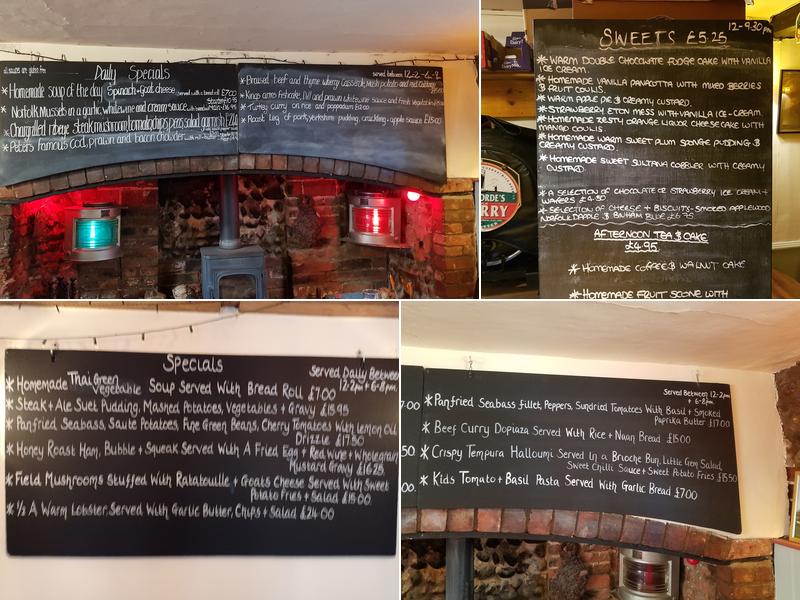 Daily Specials
* Homemade soup of the day Spinach + goat cheese
* Norfolk Mussels in a garlic, white wine and cream sauce
* Chargrilled ribeye steak, mushroom, tomato, chips, peas, salad garnish
* Peters Famous cod, prawn and bacon chowder
served between
* Braised beef and thyme
* Turkey curry on rice and poppadom
* Roast Leg of pork, yorkshire pudding, crackling, apple sauce £15.00
12-9.30pm
SWEETS £5.25
* WARM DOUBLE CHOCOLATE FUDGE CAKE WITH VANILLA
ICE CREAM.
* HOMEMADE VANILLA PANACOTTA WITH MIXED BERRIES
& FRUIT COULIS.
* WARM APPLE PIE & CREAMY CUSTARD.
* STRAWBERRY ETON MESS WITH VANILLA ICE-CREAM.
* HOMEMADE ZESTY ORANGE LIQUOR CHEESECAKE WITH
MANGO COULIS.
* HOMEMADE WARM SWEET PLUM SPONGE PUDDING &
CREAMY CUSTARD.
* HOMEMADE SWEET SULTANA COBBLER WITH CREAMY
CUSTARD.
* A SELECTION OF CHOCOLATE OR STRAWBERRY ICE CREAM +
WAFERS £4.50
* SELECTION OF CHEESE + BISCUITS - SMOKED APPLEWOOD
NORFOLK DAPPLE & BINHAM BLUE £6.75
AFTERNOON TEA & CAKE
£4.95
* HOMEMADE COFFEE & WALNUT CAKE
* HOMEMADE FRUIT SCONE WITH
Specials
Served Daily Between
12-2pm + 6-8pm.
* Homemade Thai Green Vegetable Soup Served With Bread Roll £7.00
* Steak + Ale Suet Pudding, Mashed Potatoes, Vegetables + Gravy £15.95
* Panfried Seabass, Saute Potatoes, Fine Green Beans, Cherry Tomatoes With Lemon Oil
Drizzle £17.50
* Honey Roast Ham, Bubble + Squeak Served With A Fried Egg + Red Wine + Wholegrain
Mustard Gravy £16.25
* Field Mushrooms Stuffed With Ratatouille + Goats Cheese Served With Sweet
Potato Fries + Salad £15.00
* ½ A Warm Lobster, Served With Garlic Butter, Chips + Salad £24.00
Served Between 12-2pm
+ 6-8pm.
7.00
* Panfried Seabass fillet, Peppers, Sundried Tomatoes With Basil + Smoked
Paprika Butter £17.00
* Beef Curry Dopiaza Served With Rice + Naan Bread £15.00
50
* Crispy Tempura Halloumi Served In a Brioche Bun, Little Gem Salad,
Sweet Chilli Sauce + Sweet Potato Fries £15.50
00.
* Kids Tomato + Basil Pasta Served With Garlic Bread £7.00